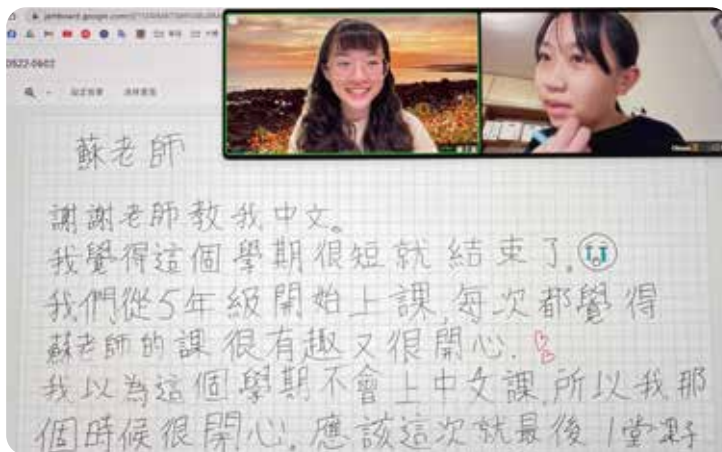 jamboard.google.com/d/
0522-0602
設定背景 清除畫面
蘇老師
謝謝老師教我中文。
我覺得這個學期很短就結束了。
我們從5年級開始上課,每次都覺得
蘇老師的課很有趣又很開心.
我以為這個學期不會上中文課,所以我那
個時候很開心.應該這次就最後1堂課